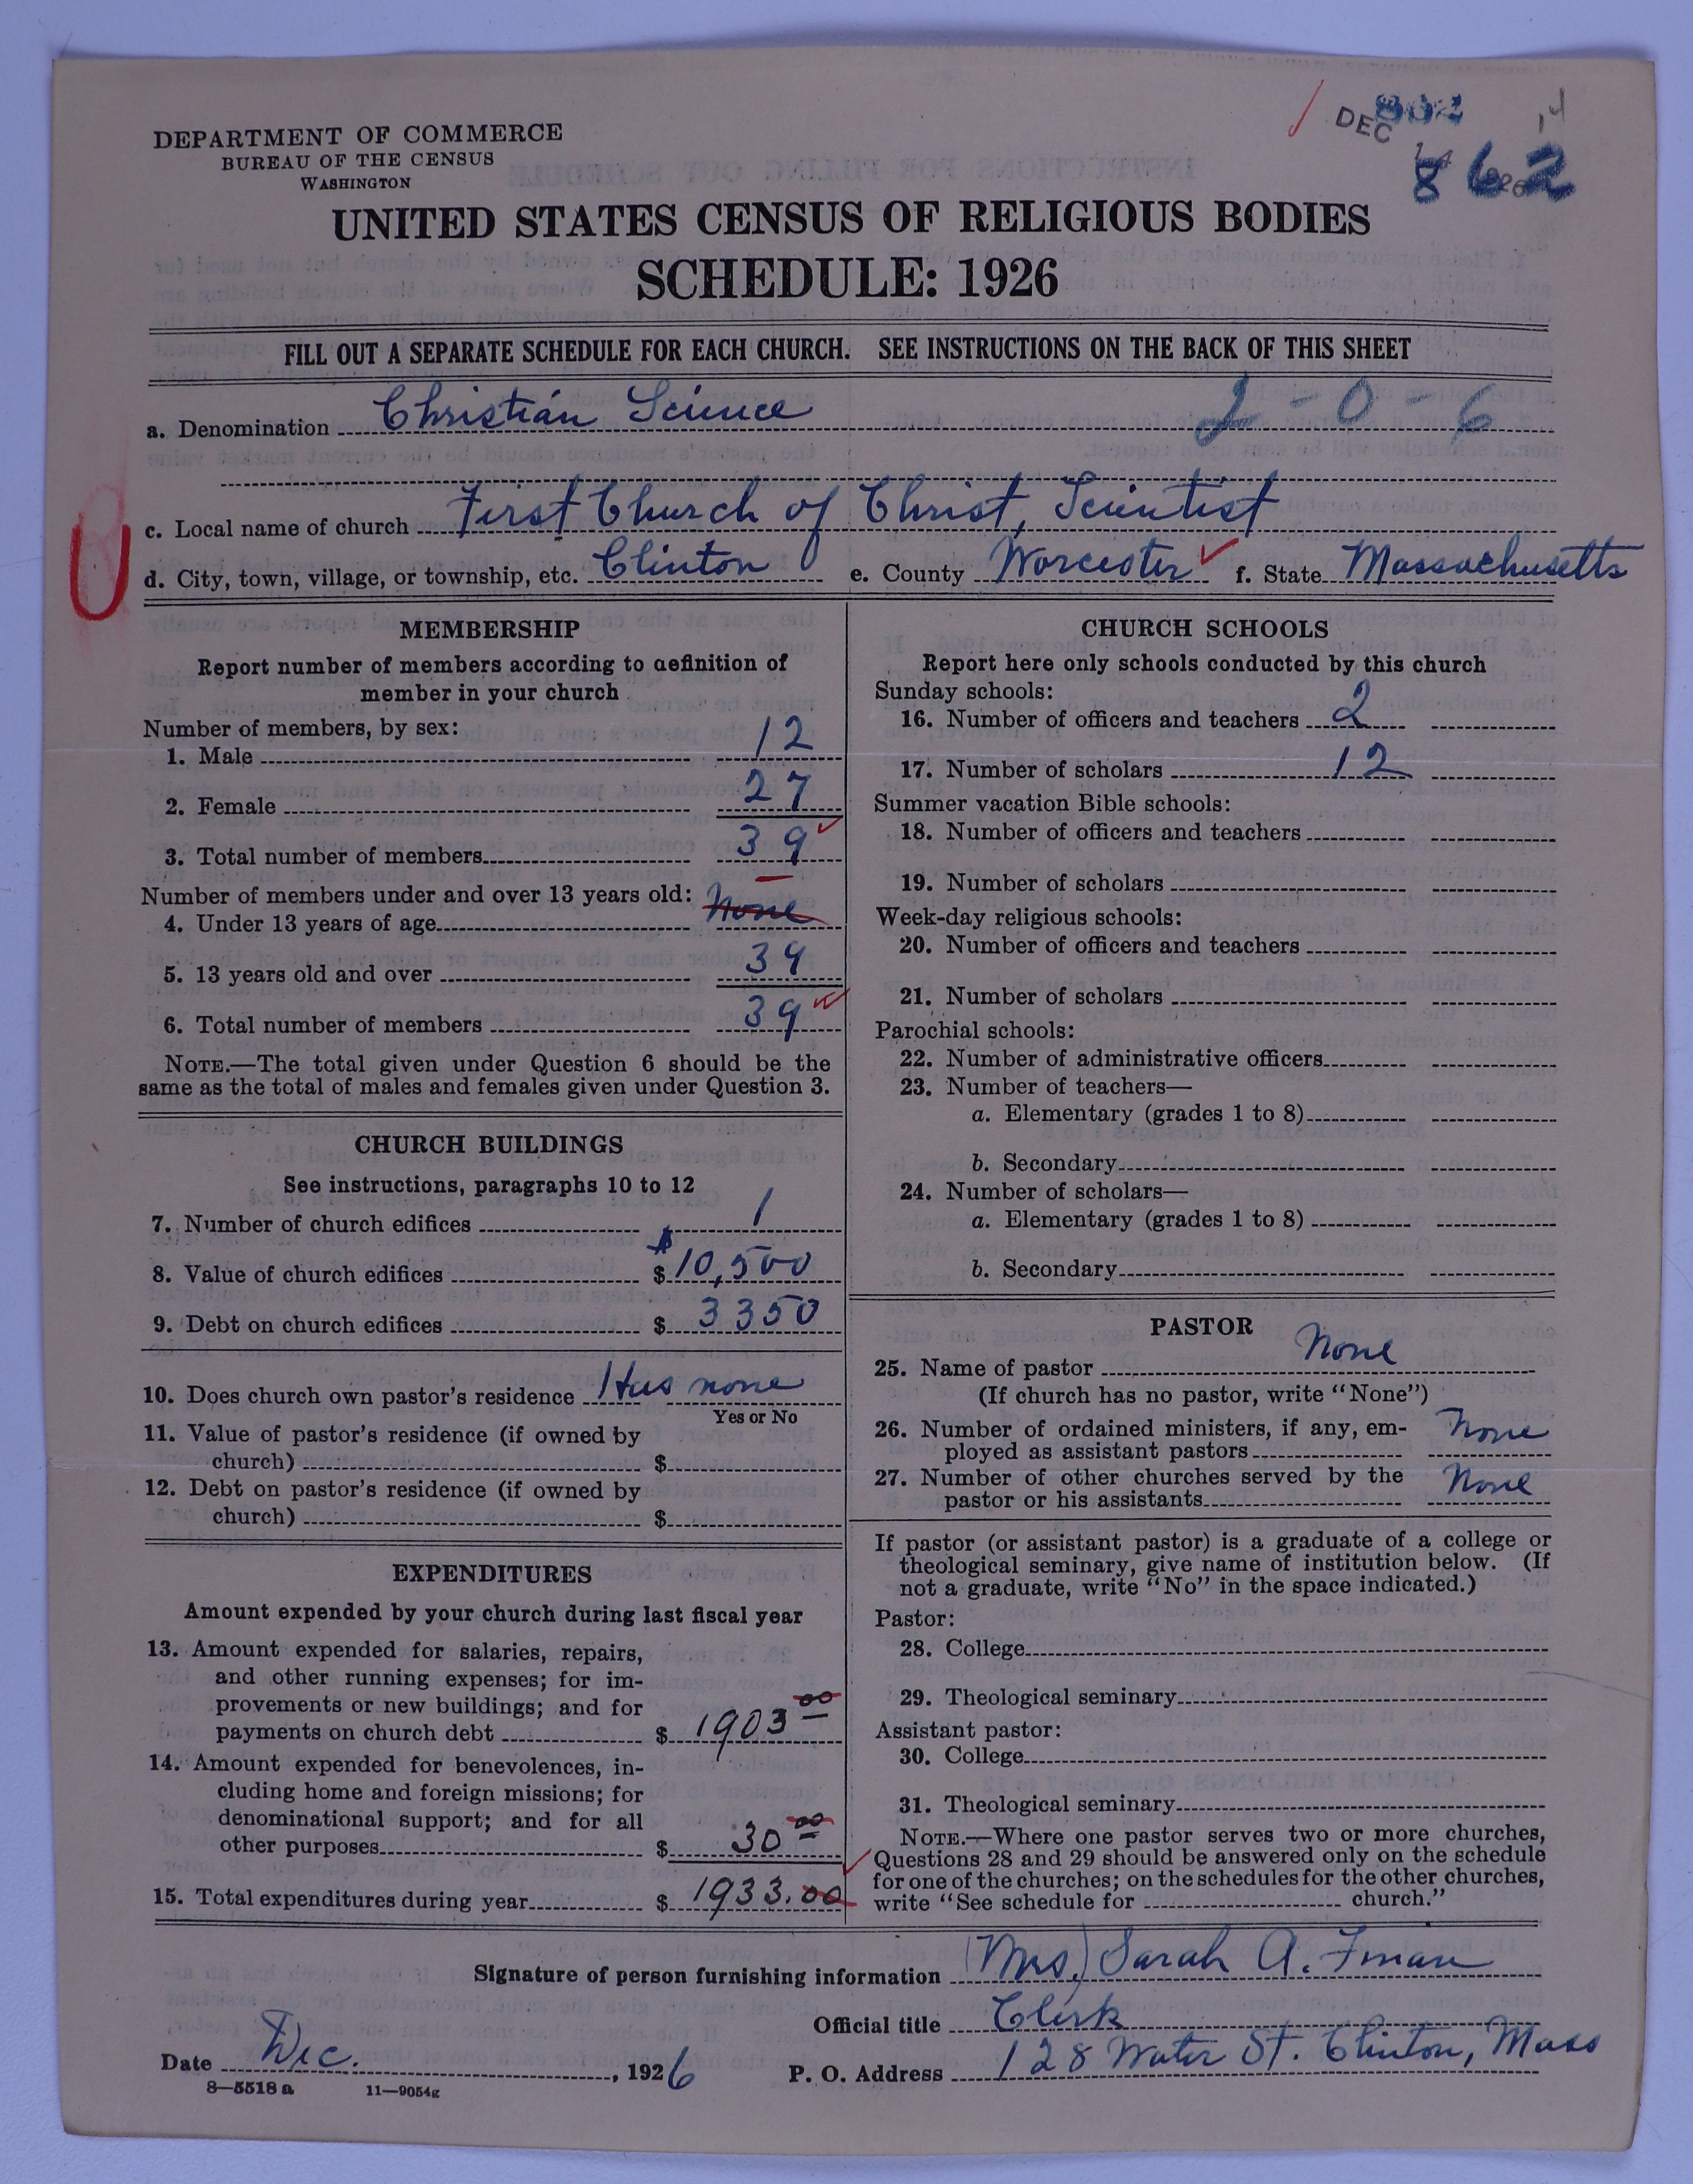 DEPARTMENT OF COMMERCE
BUREAU OF THE CENSUS
WASHINGTON
DEC 14 1926
862
UNITED STATES CENSUS OF RELIGIOUS BODIES
SCHEDULE: 1926
FILL OUT A SEPARATE SCHEDULE FOR EACH CHURCH. SEE INSTRUCTIONS ON THE BACK OF THIS SHEET
a. Denomination Christian Science 2-0-6
c. Local name of church First Church of Christ, Scientist
d. City, town, village, or township, etc. Clinton e. County Worcester f. State Massachusetts
MEMBERSHIP
Report number of members according to definition of
member in your church
Number of members, by sex:
1. Male 12
2. Female 27
3. Total number of members 39
Number of members under and over 13 years old:
4. Under 13 years of age None
5. 13 years old and over 39
6. Total number of members 39
NOTE.—The total given under Question 6 should be the
same as the total of males and females given under Question 3.
CHURCH BUILDINGS
See instructions, paragraphs 10 to 12
7. Number of church edifices 1
8. Value of church edifices $ $10,500
9. Debt on church edifices $ 3350
10. Does church own pastor's residence Has none
Yes or No
11. Value of pastor's residence (if owned by
church) $
12. Debt on pastor's residence (if owned by
church) $
EXPENDITURES
Amount expended by your church during last fiscal year
13. Amount expended for salaries, repairs,
and other running expenses; for im-
provements or new buildings; and for
payments on church debt $ 1903 00
14. Amount expended for benevolences, in-
cluding home and foreign missions; for
denominational support; and for all
other purposes $ 30 00
15. Total expenditures during year $ 1933.00
CHURCH SCHOOLS
Report here only schools conducted by this church
Sunday schools:
16. Number of officers and teachers 2
17. Number of scholars 12
Summer vacation Bible schools:
18. Number of officers and teachers
19. Number of scholars
Week-day religious schools:
20. Number of officers and teachers
21. Number of scholars
Parochial schools:
22. Number of administrative officers
23. Number of teachers—
a. Elementary (grades 1 to 8)
b. Secondary
24. Number of scholars—
a. Elementary (grades 1 to 8)
b. Secondary
PASTOR
25. Name of pastor None
(If church has no pastor, write "None")
26. Number of ordained ministers, if any, em-
ployed as assistant pastors None
27. Number of other churches served by the
pastor or his assistants None
If pastor (or assistant pastor) is a graduate of a college or
theological seminary, give name of institution below. (If
not a graduate, write "No" in the space indicated.)
Pastor:
28. College
29. Theological seminary
Assistant pastor:
30. College
31. Theological seminary
NOTE.—Where one pastor serves two or more churches,
Questions 28 and 29 should be answered only on the schedule
for one of the churches; on the schedules for the other churches,
write "See schedule for church."
Signature of person furnishing information (Mrs.) Sarah A.
Official title Clerk
Date Dec. , 1926 P. O. Address 128 Water St. Clinton, Mass
8—5518 a 11—9054g